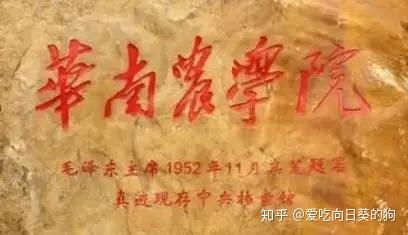 華南農學院
毛泽东主席1952年11月亲笔题署
真迹现存中共档案馆
知乎 @爱吃向日葵的狗